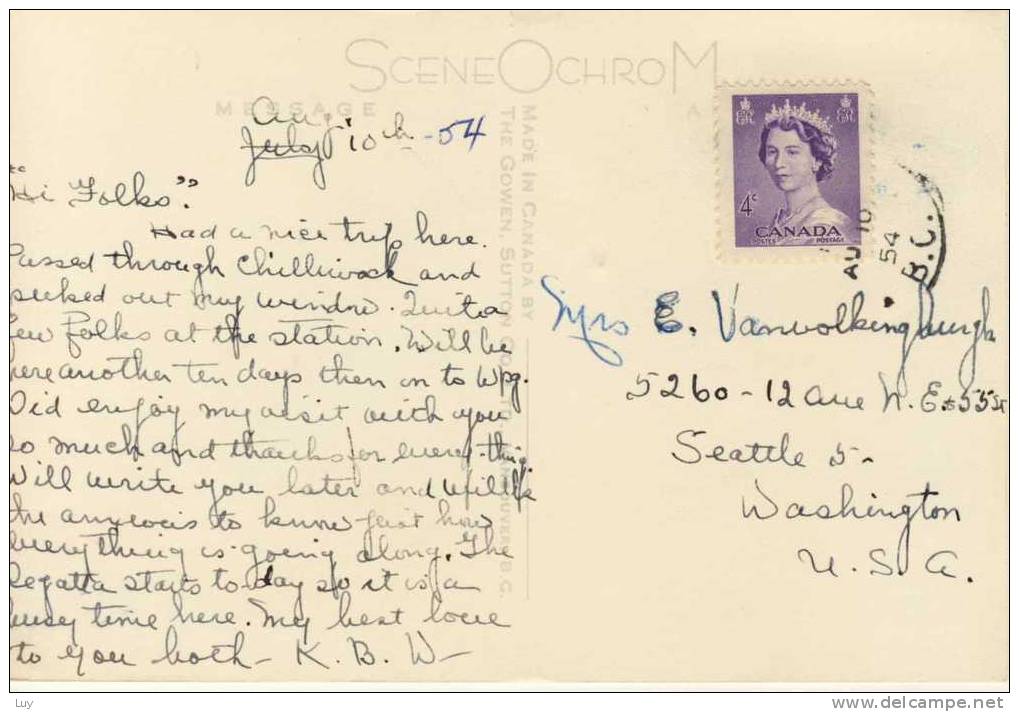 SCENEOCHROM
MESSAGE
A
MADE IN CANADA BY
THE GOWEN, SUTTON CO. LTD. VANCOUVER, B.C.
Aug
July 10th -54
"Hi Folks".
Had a nice trip here.
Passed through Chilliwack and
picked out my window. Quite a
few folks at the station. Will be
here another ten days then on to Wpg.
Did enjoy my visit with you
so much and thanks for every-thing.
Will write you later and will
be anxious to know just how
everything is going along. The
Regatta starts to-day so it is a
busy time here. My best love
to you both - K. B. W -
4c
CANADA
POSTES POSTAGE
AU 10
54
B.C.
Mrs E. Vanvolkingburgh
5260 - 12 Ave N. E. & 55 St
Seattle 5 -
Washington
U. S. A.
Luy
www.delcampe.net